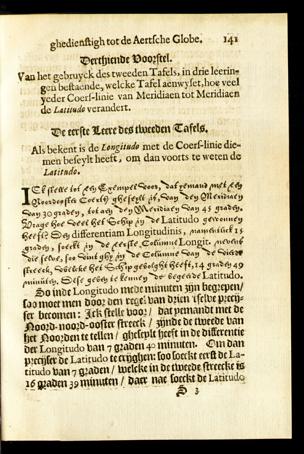 ghedienstigh tot de Aertsche Globe. 141
Derthiende Voorstel.
Van het gebruyck des tweeden Tafels, in drie leerin-
gen bestaende, welcke Tafel aenwyset, hoe veel
yeder Coers-linie van Meridiaen tot Meridiaen
de Latitudo verandert.
De eerste Leere des tweeden Tafels.
Als bekent is de Longitudo met de Coers-linie die-
men beseylt heeft, om dan voorts te weten de
Latitudo.
ICk stelle tot een Exempel voor, dat yemant met een
Noordooster Coers gheseylt zy, van den Meridiaen
van 30 graden, tot aen den Meridiaen van 45 graden,
Vrage hoe veel het Schip in de Latitudo gewonnen
heeft? Den differentiam Longitudinis, namentlick 15
graden, soeckt in de eerste Columne Longit. nevens
die selve, soo vint ghy in de Columne van de vierde
streeck, welcke het Schip gevolght heeft, 14 graden 49
minuten. Dese geven te kennen de begeerde Latitudo.
So inde Longitudo mede minuten zijn begrepen/
soo moet men door den regel van drien tselve precij-
ser becomen: Ick stelle voor/ dat yemandt met de
Noord-noord-ooster streeck/ zijnde de tweede van
het Noorden te tellen/ gheseylt heeft in de differentie
der Longitudo van 7 graden 40 minuten. Om dan
precijser de Latitudo te crijghen: soo soeckt eerst de La-
titudo van 7 graden/ welcke in de tweede streecke is
16 graden 39 minuten/ daer nae soeckt de Latitudo
S 3